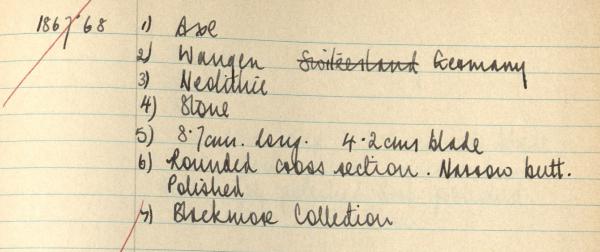 1867·68 1) Axe
2) Wangen Switzerland Germany
3) Neolithic
4) Stone
5) 8·7cm. long. 4·2cms blade
6) Rounded cross section. Narrow butt.
Polished
7) Blackmore Collection